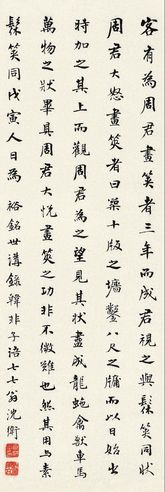 客有為周君畫筴者三年而成君視之與髹筴同狀
周君大怒畫筴者曰築十版之墻鑿八尺之牖而以日始出
時加之其上而觀周君為之望見其狀盡成龍蛇禽獸車馬
萬物之狀畢具周君大悅畫筴之功非不微難也然其用與素
髹筴同戊寅人日為 裕銘世講錄韓非子語七七翁沈衛